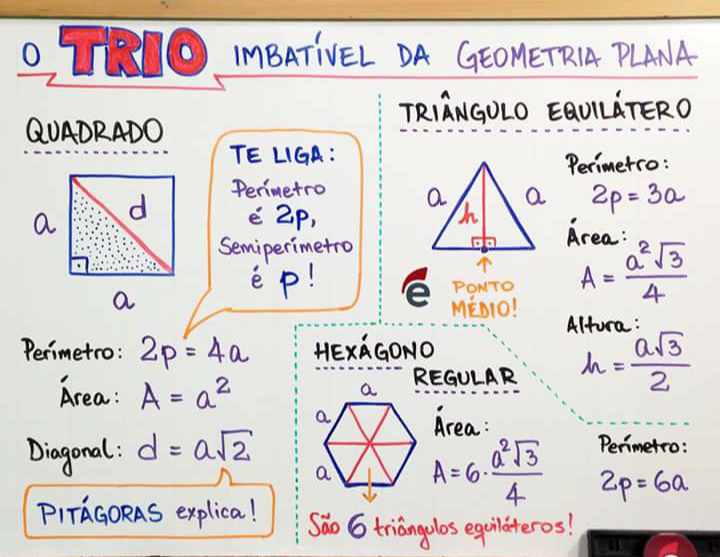 O TRIO IMBATÍVEL DA GEOMETRIA PLANA
QUADRADO
a
d
a
TE LIGA:
Perímetro
é 2p,
Semiperímetro
é p!
Perímetro: 2p = 4a
Área: A = a²
Diagonal: d = a√2
PITÁGORAS explica!
TRIÂNGULO EQUILÁTERO
a
h
a
e
PONTO
MÉDIO!
Perímetro:
2p = 3a
Área:
A = a²√3/4
Altura:
h = a√3/2
HEXÁGONO
REGULAR
a
a
a
Área:
A = 6 · a²√3/4
São 6 triângulos equiláteros!
Perímetro:
2p = 6a